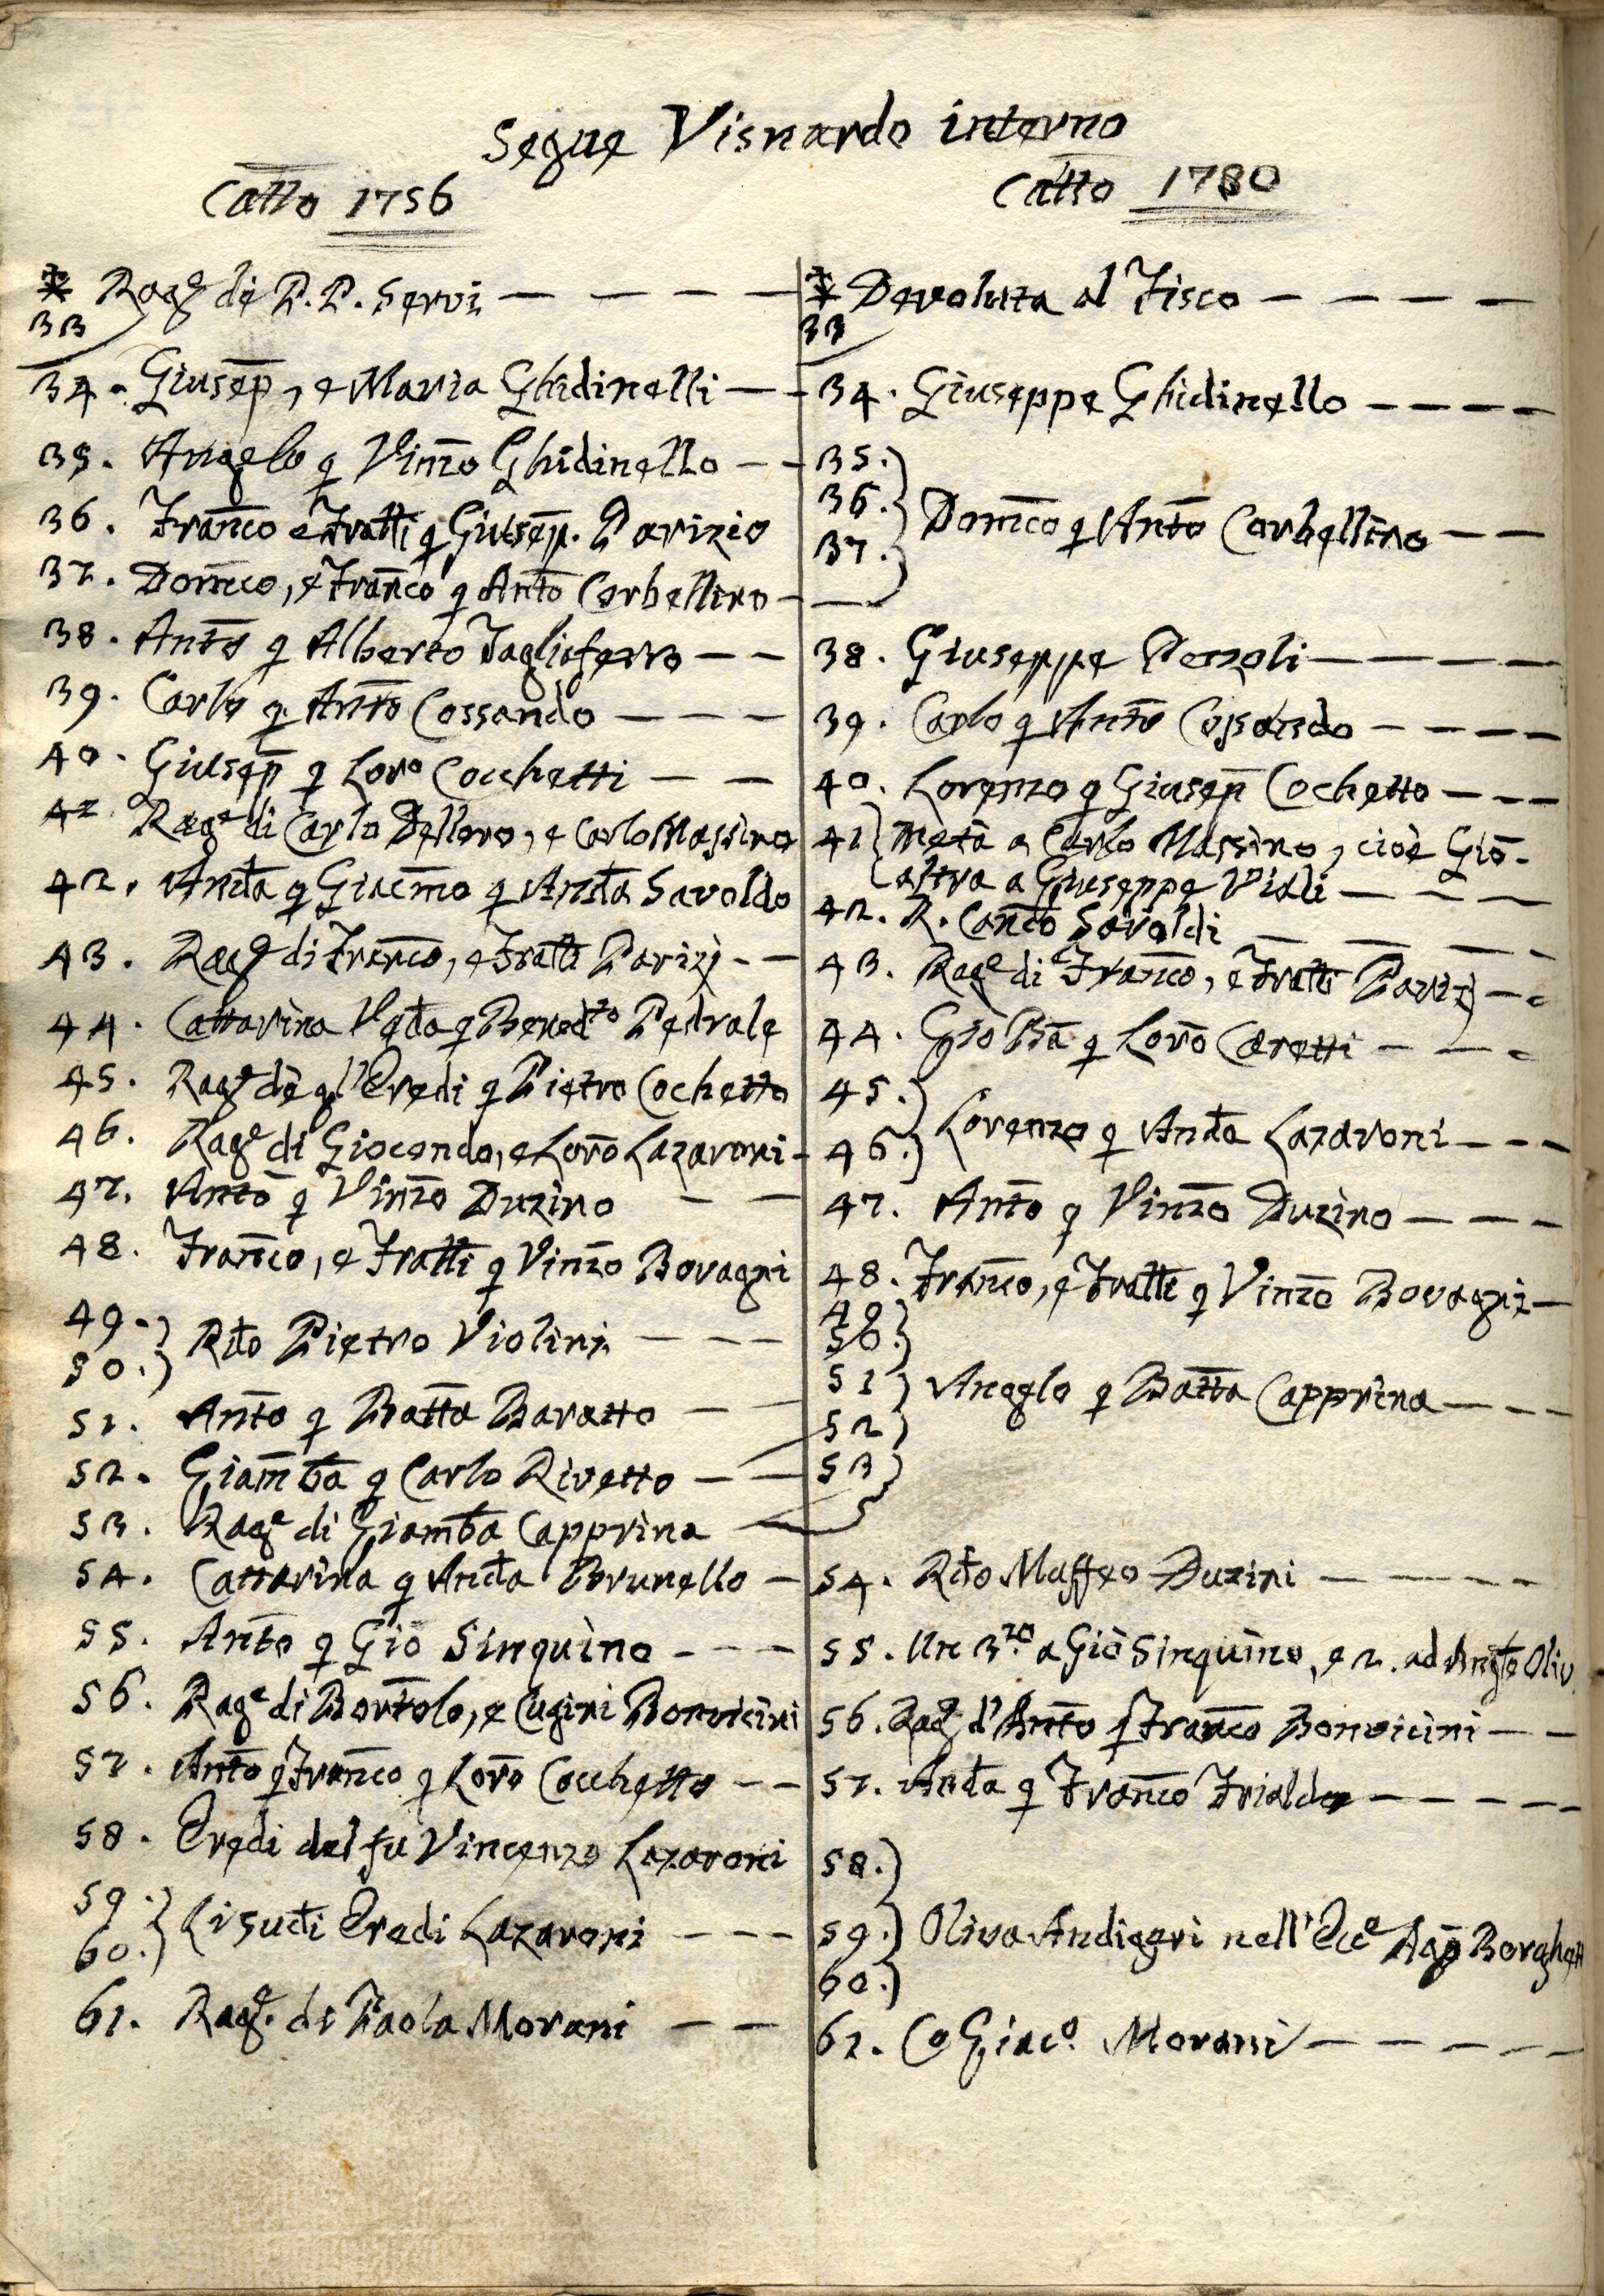 Segue Visnardo interno
Catto 1756
* Rag.e di P.P. Servi
33
34. Giusep, e Maria Ghidinelli
35. Angelo q Vinzo Ghidinello
36. Franco e Fratti q Giusep. Parizio
37. Domco, e Franco q Anto Corbellino
38. Anto q Alberto Tagliaferro
39. Carlo q Anto Cossando
40. Giusep q Loro Cocchetti
41 Rage di Carlo Delloro, e Carlo Massino
42. Andta q Giacmo q Andta Savoldo
43. Rage di Franco, e Fratti Parizj
44. Cattarina Vedta q Benedto Pedrale
45. Rage de gl'Eredi q Pietro Cochetto
46. Rage di Giocondo, e Loro Lazaroni
47. Anto q Vinzo Duzino
48. Franco, e Fratti q Vinzo Bovagni
49.
50. Rdto Pietro Violini
51. Anto q Batta Baratto
52. Giamba q Carlo Rivetto
53. Rage di Giamba Capprina
54. Cattarina q Andta Brunello
55. Anto q Gio Sinquino
56. Rage di Bortolo, e Cugini Bonvicini
57. Anto q Franco q Loro Cocchetto
58. Eredi del fu Vincenzo Lazaroni
59.
60. Li sudti Eredi Lazaroni
61. Rage. di Paola Morani
Catto 1780
* Devoluta al Fisco
33
34. Giuseppe Ghidinello
35.
36. Domco q Anto Corbellino
37.
38. Giuseppe Pezzoli
39. Carlo q Anto Cossando
40. Lorenzo q Giusep Cochetto
41 Metà a Carlo Massino, cioè Gio.
altra a Giuseppe Viali
42. R. Canco Savoldi
43. Rage di Franco, e Fratti Parizj
44. Gio Ba q Loro Caretti
45.
46. Lorenzo q Andta Lazaroni
47. Anto q Vinzo Duzino
48. Franco, e Fratti q Vinzo Bovagni
49
50.
51 Angelo q Batta Capprina
52
53
54. Rdto Maffeo Duzini
55. Un 3.zo a Gio Sinquino, e 2. ad Angto Oliv
56. Rage d'Anto q Franco Bonvicini
57. Andta q Franco Frialdo
58.
59. Oliva Andiggri nell' Ecce Agp Borghett
60.
61. Co Giaco. Morani